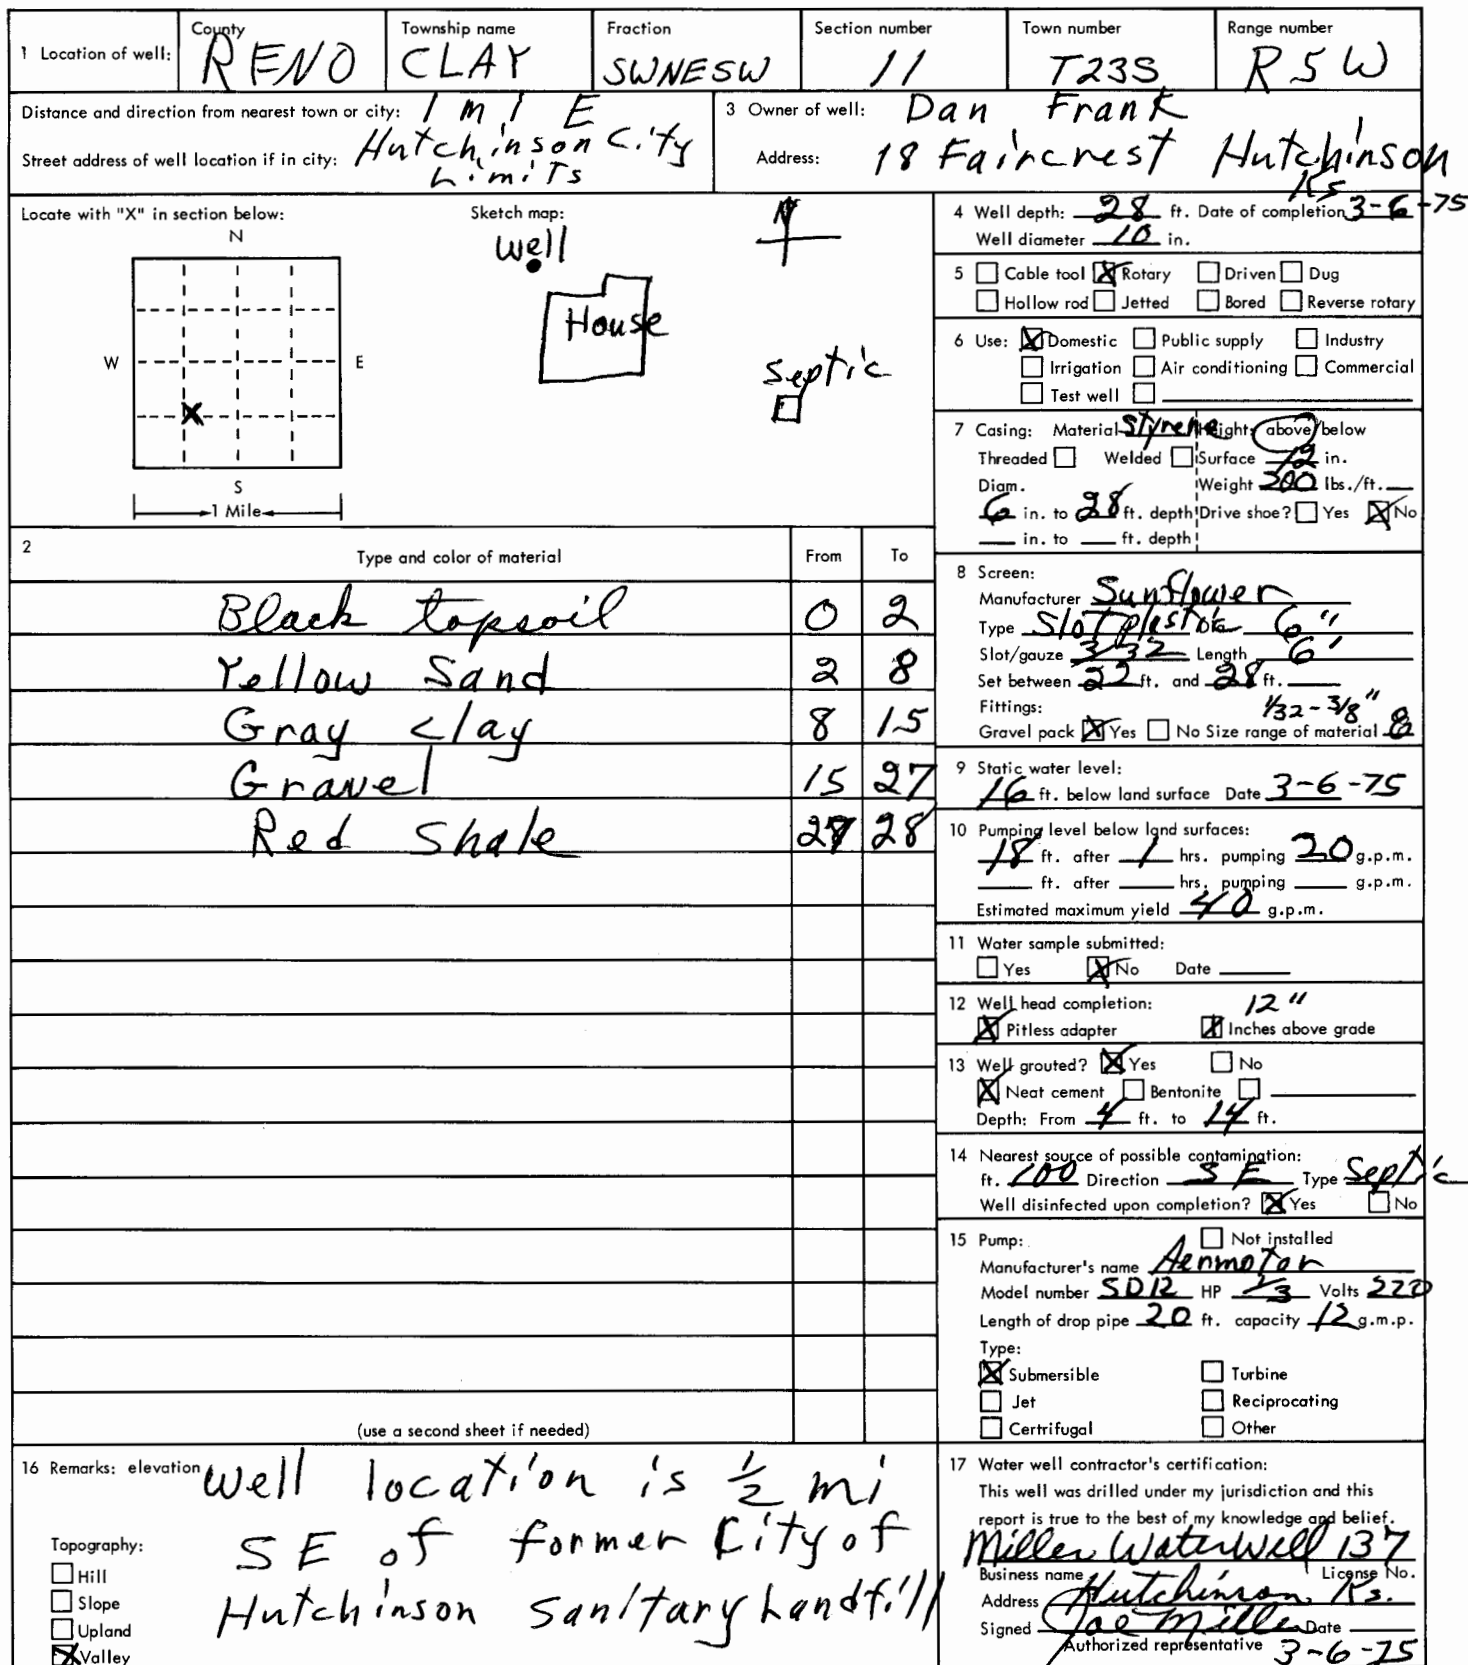 1 Location of well: County RENO Township name CLAY Fraction SWNESW Section number 11 Town number T23S Range number R5W
Distance and direction from nearest town or city: 1 mi E
Street address of well location if in city: Hutchinson City Limits
3 Owner of well: Dan Frank
Address: 18 Faircrest Hutchinson Ks
Locate with "X" in section below:
N
W
E
S
1 Mile
X
Sketch map:
Well
N
House
Septic
2 Type and color of material From To
Black topsoil 0 2
Yellow Sand 2 8
Gray clay 8 15
Gravel 15 27
Red Shale 27 28
(use a second sheet if needed)
4 Well depth: 28 ft. Date of completion 3-6-75
Well diameter 10 in.
5 Cable tool X Rotary Driven Dug
Hollow rod Jetted Bored Reverse rotary
6 Use: X Domestic Public supply Industry
Irrigation Air conditioning Commercial
Test well
7 Casing: Material Styrene Height: above/below
Threaded Welded Surface 12 in.
Diam. Weight 200 lbs./ft.
6 in. to 28 ft. depth Drive shoe? Yes X No
in. to ft. depth
8 Screen:
Manufacturer Sunflower
Type Slot plastic Dia. 6"
Slot/gauze 3/32 Length 6'
Set between 22 ft. and 28 ft.
Fittings: 1/32 - 3/8"
Gravel pack X Yes No Size range of material
9 Static water level:
16 ft. below land surface Date 3-6-75
10 Pumping level below land surfaces:
18 ft. after 1 hrs. pumping 20 g.p.m.
ft. after hrs. pumping g.p.m.
Estimated maximum yield 40 g.p.m.
11 Water sample submitted:
Yes X No Date
12 Well head completion: 12"
X Pitless adapter X Inches above grade
13 Well grouted? X Yes No
X Neat cement Bentonite
Depth: From 4 ft. to 14 ft.
14 Nearest source of possible contamination:
ft. 100 Direction SE Type Septic
Well disinfected upon completion? X Yes No
15 Pump: Not installed
Manufacturer's name Aermotor
Model number SD12 HP 1/3 Volts 220
Length of drop pipe 20 ft. capacity 12 g.m.p.
Type:
X Submersible Turbine
Jet Reciprocating
Certrifugal Other
16 Remarks: elevation Well location is 1/2 mi
SE of former City of
Hutchinson Sanitary Landfill
Topography:
Hill
Slope
Upland
X Valley
17 Water well contractor's certification:
This well was drilled under my jurisdiction and this
report is true to the best of my knowledge and belief.
Miller Water Well 137
Business name License No.
Address Hutchinson Ks.
Signed Joe Miller Date
Authorized representative 3-6-75